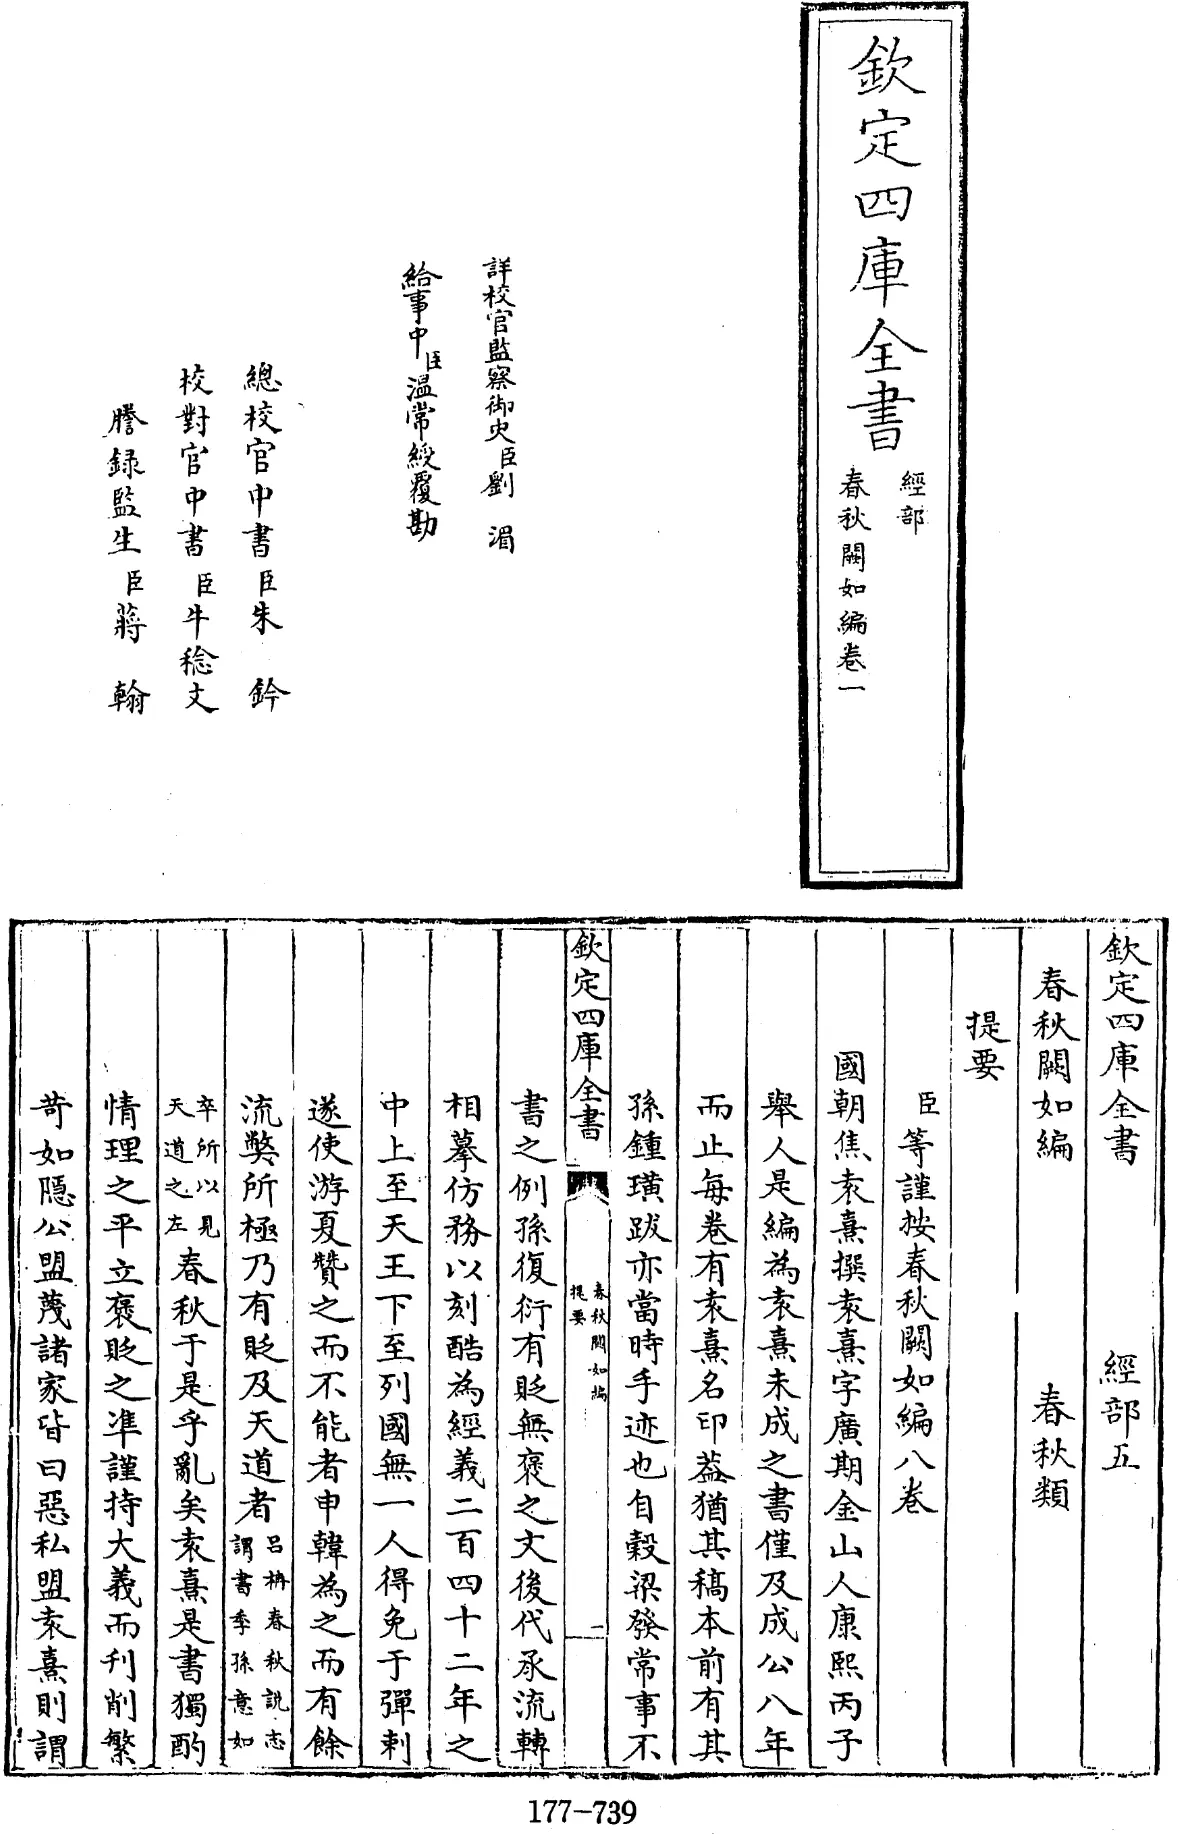 欽定四庫全書
經部
春秋闕如編卷一
詳校官監察御史臣劉湄
給事中臣溫常綬覆勘
總校官中書臣朱鈐
校對官中書臣牛稔文
謄錄監生臣蔣翰
欽定四庫全書 經部五
春秋闕如編 春秋類
提要
臣等謹按春秋闕如編八卷
國朝焦袁熹撰袁熹字廣期金山人康熙丙子
舉人是編為袁熹未成之書僅及成公八年
而止每卷有袁熹名印葢猶其稿本前有其
孫鍾璜跋亦當時手迹也自穀梁發常事不
欽定四庫全書
春秋闕如編
提要
一
書之例孫復衍有貶無褒之文後代承流轉
相摹仿務以刻酷為經義二百四十二年之
中上至天王下至列國無一人得免于彈刺
遂使游夏贊之而不能者申韓為之而有餘
流弊所極乃有貶及天道者呂柟春秋說志謂書季孫意如
卒所以見天道之左春秋于是乎亂矣袁熹是書獨酌
情理之平立褒貶之準謹持大義而刋削繁
苛如隱公盟蔑諸家皆曰惡私盟袁熹則謂
177-739